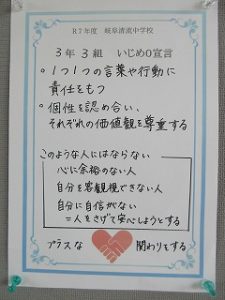 R7年度 岐阜清流中学校
3年3組 いじめ0宣言
○1つ1つの言葉や行動に
責任をもつ
○個性を認め合い、
それぞれの価値観を尊重する
このような人にはならない
心に余裕のない人
自分を客観視できない人
自分に自信がない
=人をさげて安心しようとする
プラスな 関わりをする